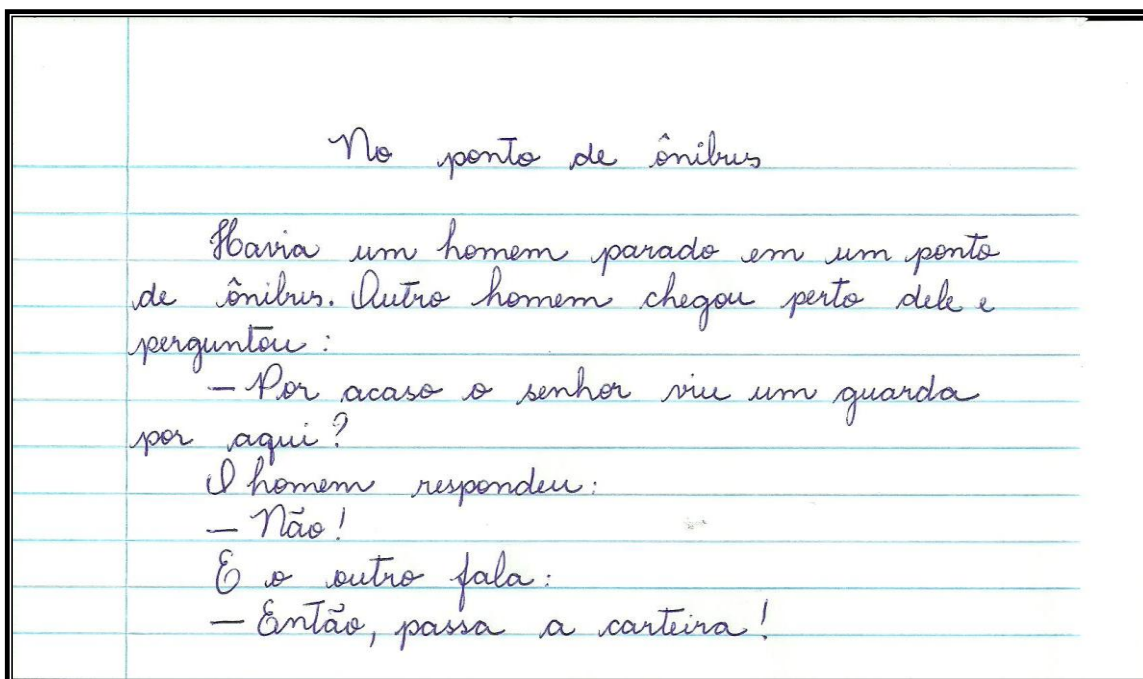 No ponto de ônibus
Havia um homem parado em um ponto
de ônibus. Outro homem chegou perto dele e
perguntou:
– Por acaso o senhor viu um guarda
por aqui?
O homem respondeu:
– Não!
E o outro fala:
– Então, passa a carteira!